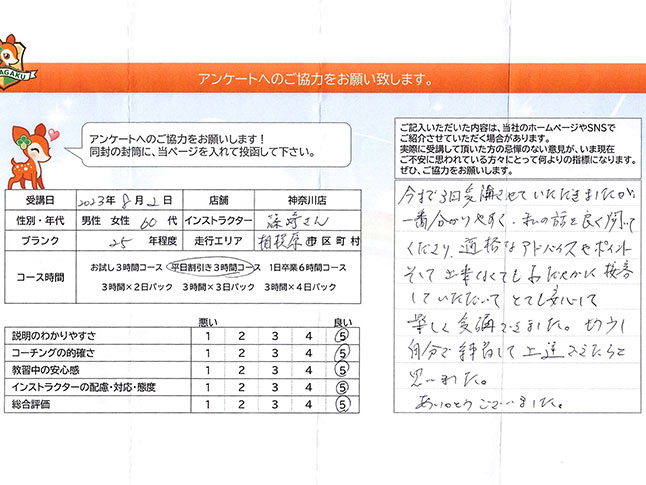 AGAKU
アンケートへのご協力をお願い致します。
アンケートへのご協力をお願いします！
同封の封筒に、当ページを入れて投函して下さい。
受講日 2023年 8月 2日 店舗 神奈川店
性別・年代 男性 女性 60代 インストラクター さん
ブランク 25 年程度 走行エリア 相模原市区町村
コース時間
お試し3時間コース 平日割引き3時間コース 1日卒業6時間コース
3時間×2日パック 3時間×3日パック 3時間×4日パック
悪い 良い
説明のわかりやすさ 1 2 3 4 5
コーチングの的確さ 1 2 3 4 5
教習中の安心感 1 2 3 4 5
インストラクターの配慮・対応・態度 1 2 3 4 5
総合評価 1 2 3 4 5
ご記入いただいた内容は、当社のホームページやSNSで
ご紹介させていただく場合があります。
実際に受講して頂いた方の忌憚のない意見が、いま現在
ご不安に思われている方々にとって何よりの指標になります。
ぜひ、ご協力をお願いします。
今まで3回受講させていただきましたが
一番分かりやすく、私の話を良く聞いて
くださり、適格なアドバイスやポイント
そして上手くなくてもおだやかに接客
していただいてとても安心して
楽しく受講できました。
自分で練習して上達できたらと
思いました。
ありがとうございました。